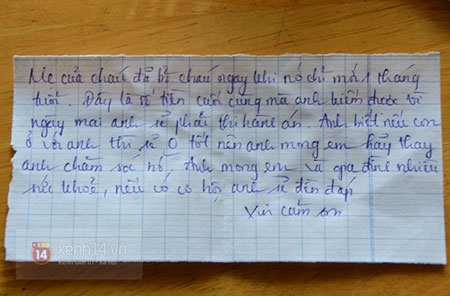 Mẹ của cháu đã bỏ cháu ngay khi nó chỉ mới 1 tháng
tuổi. Đây là số tiền cuối cùng mà anh kiếm được vì
ngay mai anh sẽ phải thi hành án. Anh biết nếu con
ở với anh thì sẽ 0 tốt nên anh mong em hãy thay
anh chăm sóc nó. Anh mong em và gia đình nhiều
sức khoẻ, nếu có cơ hội anh sẽ đền đáp
Xin cảm ơn
14 kenh14.vn